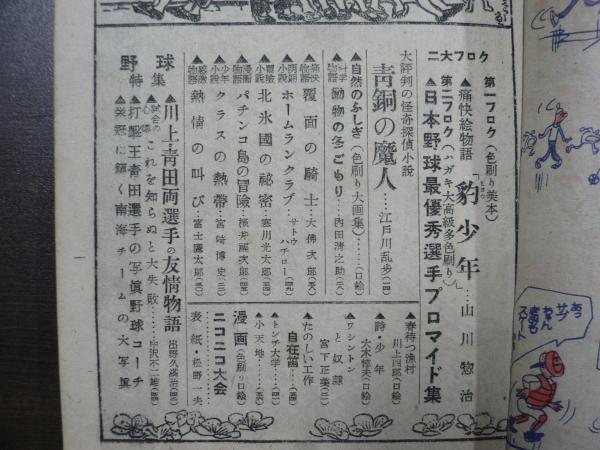 二大フロク
第一フロク(色刷り美本)
▲痛快絵物語「豹少年」…山川惣治
第二フロク(ハガキ大高級多色刷り)
▲日本野球最優秀選手プロマイド集
大評判の怪奇探偵小説
青銅の魔人…江戸川乱歩
▲自然のふしぎ(色刷り大画集)……(口絵)
動物の冬ごもり…内田清之助
▲痛快物語 覆面の騎士…大佛次郎
ホームランクラブ…サトウハチロー
▲冒険小説 北氷國の秘密…寒川光太郎
▲漫画物語 パチンコ島の冒険
▲少年小説 クラスの熱帯…宮崎博史
熱情の叫び…富士鷹太郎
▲春待つ漁村
川上四郎(口絵)
▲詩・少年
大木惇夫(口絵)
▲ワシントンと奴隷
宮下正美
たのしい工作
自在笛
▲トンチ大学
▲小天地
漫画(色刷り口絵)
ニコニコ大会
表紙・松野一夫
野球特集
▲川上・青田両選手の友情物語
これを知らぬと大失敗……中沢不二雄
▲打撃王青田選手の写眞野球コーチ
▲栄冠に輝く南海チームの大写眞